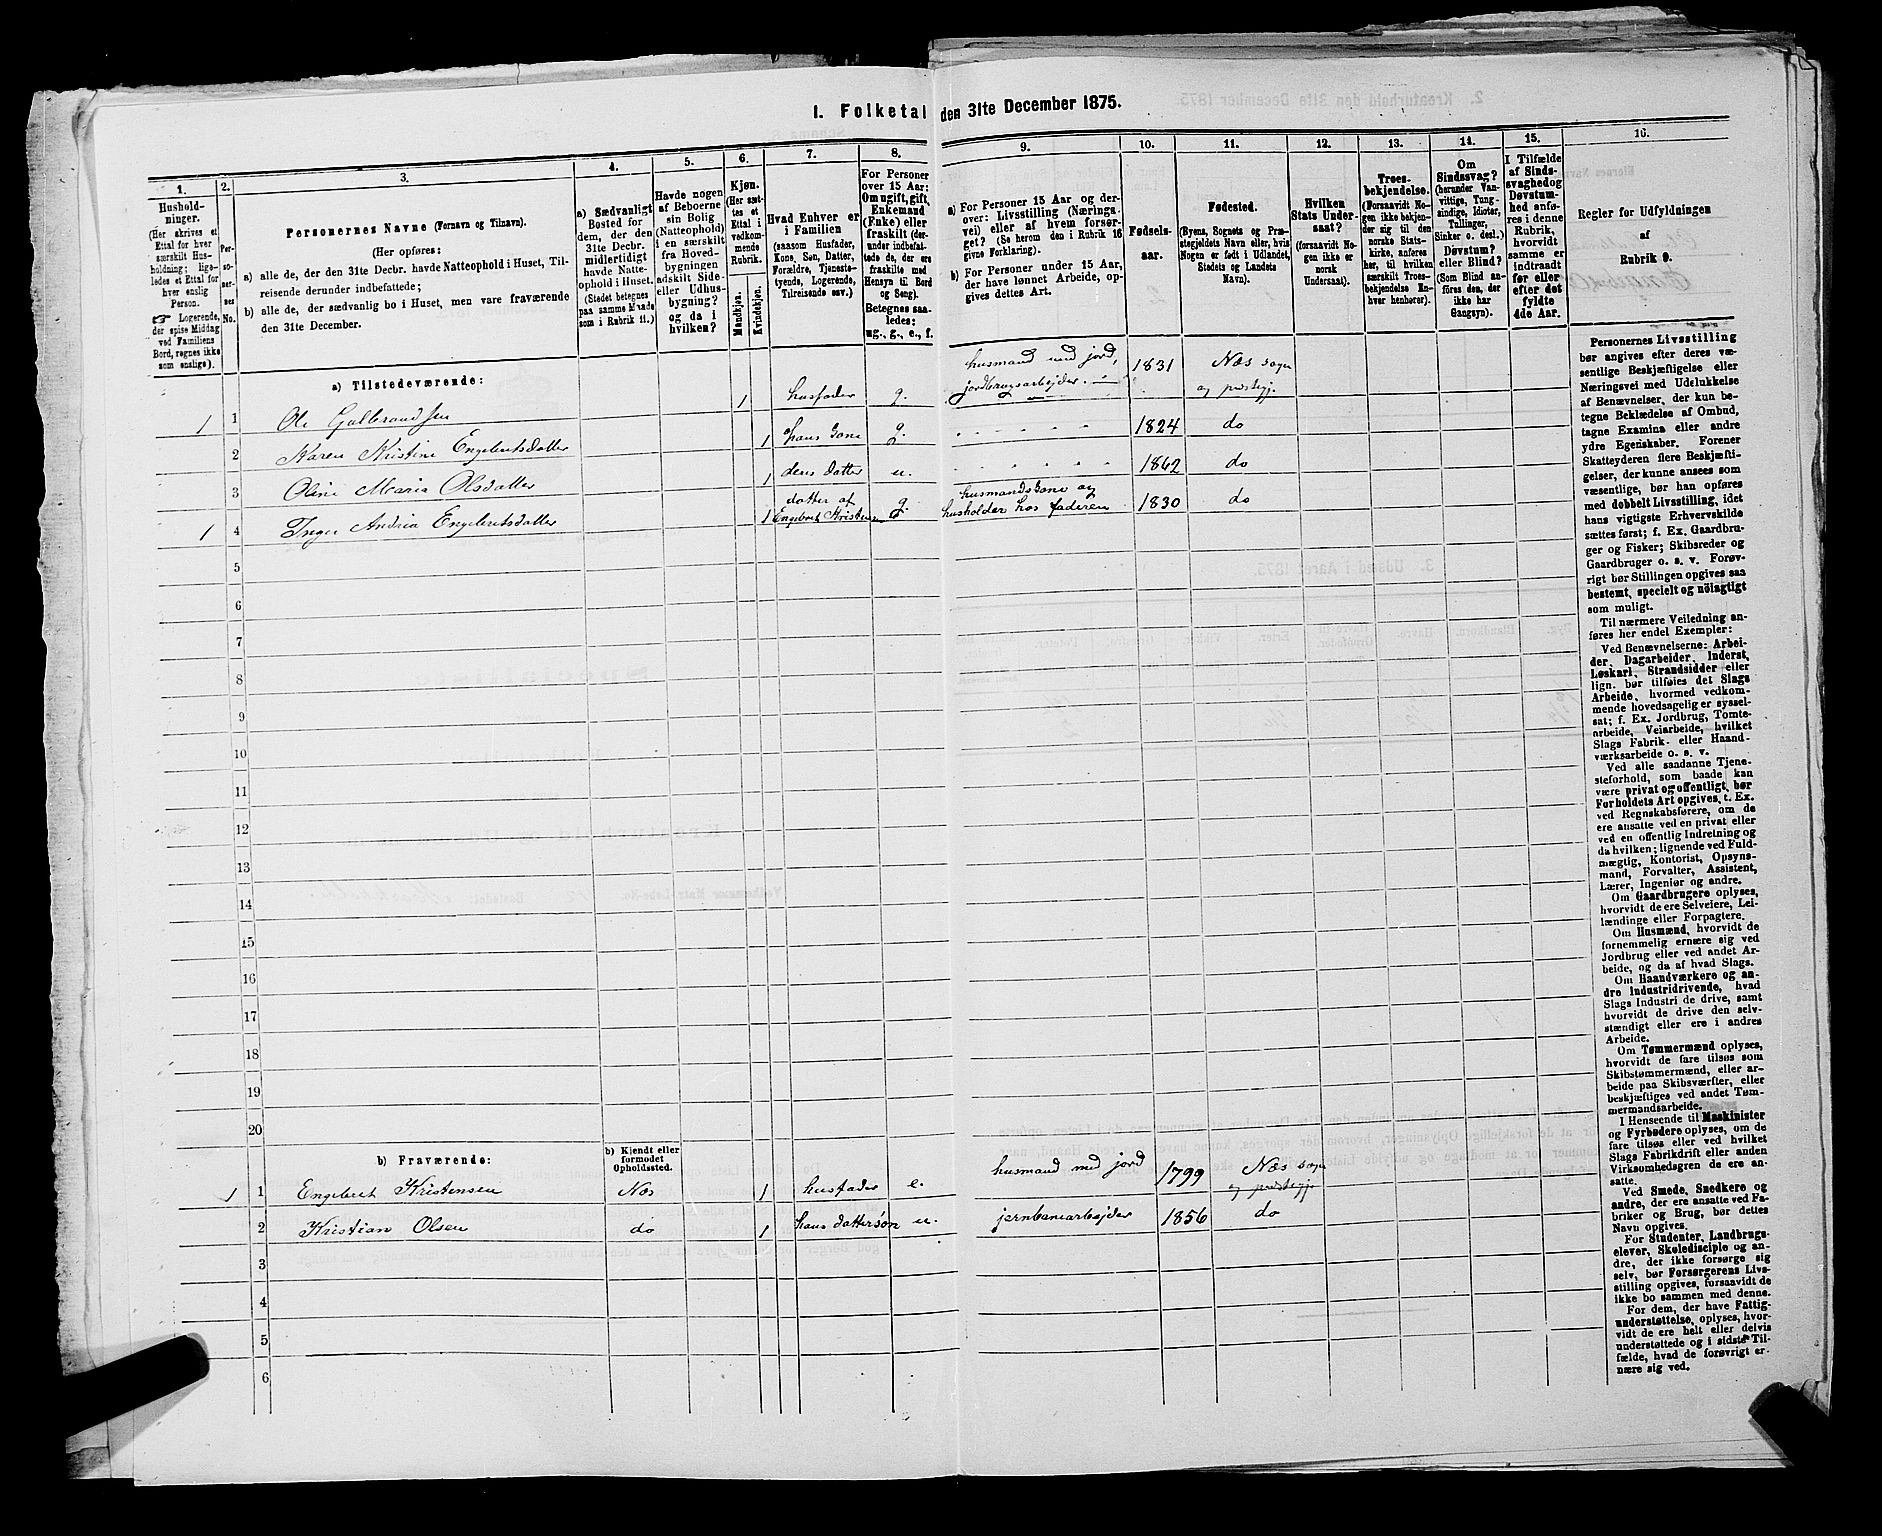 1. Folketal den 31te December 1875.
1.
2.
3.
4.
5.
6.
7.
8.
9.
10.
11.
12.
13.
14.
15.
16.
Hushold-
ninger.
(Her skrives et
Ettal for hver
særskilt Hus-
holdning; lige-
ledes et Ettal for
hver enslig
Person.
☞ Logerende,
der spise Middag
ved Familiens
Bord, regnes ikke
som enslige).
Per-
so-
ner-
nes
No.
Personernes Navne (Fornavn og Tilnavn).
(Her opføres:
a) alle de, der den 31te Decbr. havde Natteophold i Huset, Til-
reisende derunder indbefattede;
b) alle de, der sædvanlig bo i Huset, men vare fraværende
den 31te December.
a) Sædvanligt
Bosted for
dem, der den
31te Decbr.
midlertidigt
havde Natte-
ophold i Huset.
(Stedet betegnes
paa samme Maade
som i Rubrik 11.)
Havde nogen
af Beboerne
sin Bolig
(Natteophold)
i en særskilt
fra Hoved-
bygningen
adskilt Side-
eller Udhus-
bygning?
og da i
hvilken?
Kjøn.
(Her sæt-
tes et
Ettal i
vedkom-
mende
Rubrik.
Mandkjøn.
Kvindekjøn.
Hvad Enhver er
i Familien
(saasom Husfader,
Kone, Søn, Datter,
Forældre, Tjeneste-
tyende, Logerende,
Tilreisende osv.)
For Personer
over 15 Aar:
Om ugift, gift,
Enkemand
(Enke) eller
fraskilt (der-
under indbefat-
tede de, der ere
fraskilte med
Hensyn til Bord
og Seng).
Betegnes saa-
ledes:
ug., g., e., f.
a) For Personer 15 Aar og der-
over: Livsstilling (Nærings-
vei) eller af hvem forsør-
get? (Se herom den i Rubrik 16
givne Forklaring).
b) For Personer under 15 Aar,
der have lønnet Arbeide, op-
gives dettes Art.
Fødsels-
aar.
Fødested.
(Byens, Sognets og Præ-
stegjeldets Navn eller, hvis
Nogen er født i Udlandet,
Stedets og Landets
Navn).
Hvilken
Stats Under-
saat?
(forsaavidt No-
gen ikke er
norsk
Undersaat).
Troes-
bekjendelse.
(Forsaavidt No-
gen ikke bekjen-
der sig til den
norske Stats-
kirke, anføres
her, til hvilken
særskilt Troes-
bekjendelse En-
hver henhører).
Om
Sindssvag?
(herunder Van-
vittige, Tung-
sindige, Idioter,
Tullinger,
Sinker o. desl.)
Døvstum?
eller Blind?
(Som Blind an-
føres den, der
ikke har
Gangsyn).
I Tilfælde
af Sinds-
svaghed og
Døvstum-
hed anfø-
res i denne
Rubrik,
hvorvidt
samme er
indtraadt
før eller
efter det
fyldte
4de Aar.
Regler for Udfyldningen
af
Rubrik 9.
a) Tilstedeværende:
1 1 Ole Gulbrandsen 1 husfader g. husmand med jord, jordbrugsarbejder 1831 Næs sogn og præstegj.
2 Karen Kristine Engebretsdatter 1 hans kone g. 1824 do
3 Oline Maria Olsdatter 1 deres datter u. 1862 do
1 4 Inger Andria Engebretsdatter 1 datter af Engebret Kristensen g. husmandskone og husholder hos faderen 1830 do
5
6
7
8
9
10
11
12
13
14
15
16
17
18
19
20
b) Fraværende:
b) Kjendt eller
formodet
Opholdssted.
1 1 Engebret Kristensen Næs 1 husfader e. husmand med jord 1799 Næs sogn og præstegj.
2 Kristian Olsen do 1 hans dattersøn u. jernbanearbejder 1856 do
3
4
5
6
Personernes Livsstilling
bør angives efter deres væ-
sentlige Beskjæftigelse eller
Næringsvei med Udelukkelse
af Benævnelser, der kun be-
tegne Beklædelse af Ombud,
tagne Examina eller andre
ydre Egenskaber. Forener
Skatteyderen flere Beskjæfti-
gelser, der kunne ansees som
væsentlige, bør han opføres
med dobbelt Livsstilling, idet
hans vigtigste Erhvervskilde
sættes først; f. Ex. Gaardbru-
ger og Fisker; Skibsreder og
Gaardbruger o. s. v. Forøv-
rigt bør Stillingen opgives saa
bestemt, specielt og nöiagtigt
som muligt.
Til nærmere Veiledning an-
føres her endel Exempler:
Ved Benævnelserne: Arbei-
der, Dagarbeider, Inderst,
Løskarl, Strandsidder eller
lign. bør tilføies det Slags
Arbeide, hvormed vedkom-
mende hovedsagelig er syssel-
sat; f. Ex. Jordbrug, Tomte-
arbeide, Veiarbeide, hvilket
Slags Fabrik- eller Haand-
værksarbeide o. s. v.
Ved alle saadanne Tjene-
steforhold, som baade kan
være privat og offentligt, bør
Forholdets Art opgives, t. Ex.
ved Regnskabsførere, om de
ere ansatte ved en privat eller
ved en offentlig Indretning og
da hvilken; lignende ved Fuld-
mægtig, Kontorist, Opsyns-
mand, Forvalter, Assistent,
Lærer, Ingeniør og andre.
Om Gaardbrugere oplyses,
hvorvidt de ere Selveiere, Lei-
lændinge eller Forpagtere.
Om Husmænd, hvorvidt de
fornemmelig ernære sig ved
Jordbrug eller ved andet Ar-
beide, og da af hvad Slags.
Om Haandværkere og an-
dre Industridrivende, hvad
Slags Industri de drive, samt
hvorvidt de drive den selv-
stændigt eller ere i andres
Arbeide.
Om Tømmermænd oplyses,
hvorvidt de fare tilsøs som
Skibstømmermænd, eller ar-
beide paa Skibsværfter, eller
beskjæftiges ved andet Tøm-
mermandsarbeide.
I Henseende til Maskinister
og Fyrbødere oplyses, om de
fare tilsøs eller ved hvilket
Slags Fabrikdrift eller anden
Virksomhedsgren de ere an-
satte.
Ved Smede, Snedkere og
andre, der ere ansatte ved Fa-
briker og Brug, bør dettes
Navn opgives.
For Studenter, Landbrugs-
elever, Skoledisciple og an-
dre, der ikke forsørge sig
selv, bør Forsørgerens Livs-
stilling opgives, forsaavidt de
ikke bo sammen med denne.
For dem, der have Fattig-
understøttelse, oplyses, hvor-
vidt de ere helt eller delvis
understøttede og i sidste Til-
fælde, hvad de forøvrigt er-
nære sig ved.